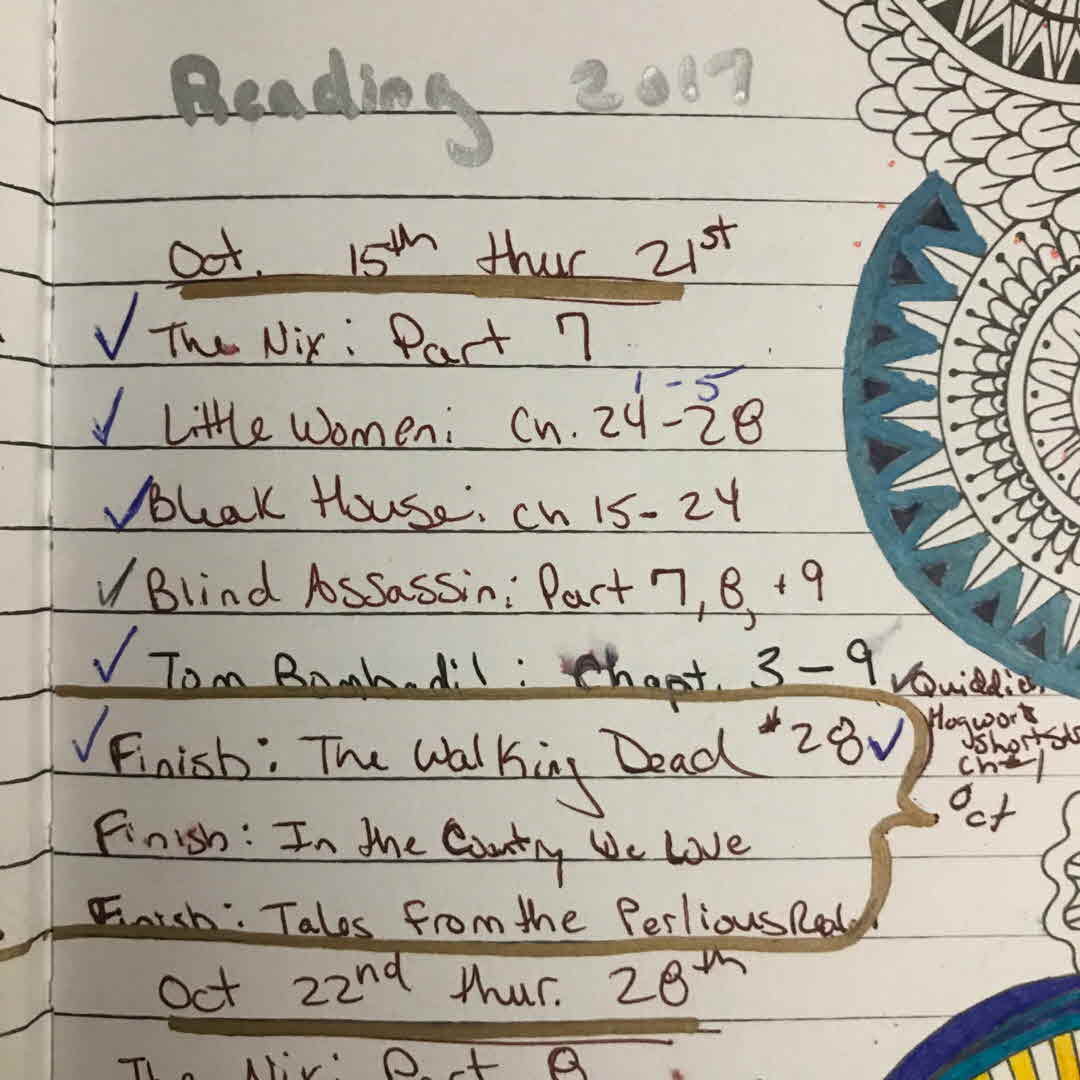 Reading 2017
Oct. 15th thur 21st
✓ The Nix: Part 7
1-5
✓ Little Women: Ch. 24-28
✓ Bleak House: ch 15-24
✓ Blind Assassin: Part 7, 8, + 9
✓ Tom Bombadil: Chapt. 3-9
✓ Quiddich
Hogwort
Shorts
ch-1
Oct
✓ Finish: The Walking Dead #28 ✓
Finish: In the Country We Love
Finish: Tales from the Perlious Real.
Oct 22nd thur. 28th
The Nix: Part 8